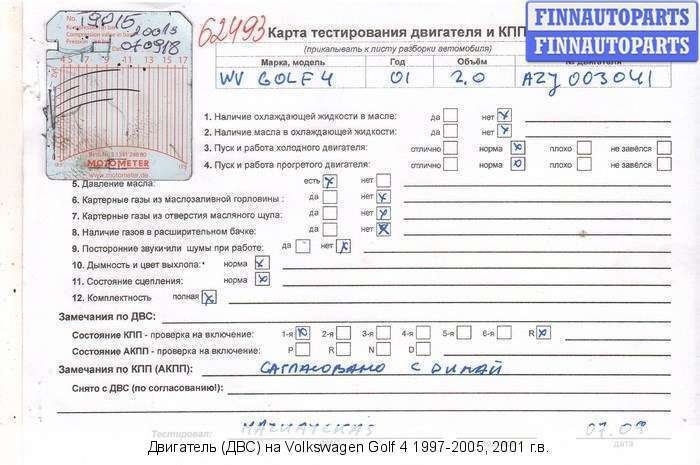 19015
2001г
070918
62493
Карта тестирования двигателя и КПП
FINNAUTOPARTS
FINNAUTOPARTS
(прикалывать к листу разборки автомобиля)
Марка, модель Год Объём № двигателя
WV GOLF 4 01 2.0 AZJ 003041
MOTOMETER
www.motometer.de
1. Наличие охлаждающей жидкости в масле: да нет
2. Наличие масла в охлаждающей жидкости: да нет
3. Пуск и работа холодного двигателя: отлично норма плохо не завёлся
4. Пуск и работа прогретого двигателя: отлично норма плохо не завёлся
5. Давление масла: есть нет
6. Картерные газы из маслозаливной горловины : да нет
7. Картерные газы из отверстия масляного щупа: да нет
8. Наличие газов в расширительном бачке: да нет
9. Посторонние звуки или шумы при работе: да нет
10. Дымность и цвет выхлопа: норма
11. Состояние сцепления: норма
12. Комплектность полная
Замечания по ДВС:
Состояние КПП - проверка на включение: 1-я 2-я 3-я 4-я 5-я 6-я R
Состояние АКПП - проверка на включение: P R N D
Замечания по КПП (АКПП): САГЛАСОВАНО С ДИМАЙ
Снято с ДВС (по согласованию!):
Тестировал: 07.09
дата
Двигатель (ДВС) на Volkswagen Golf 4 1997-2005, 2001 г.в.